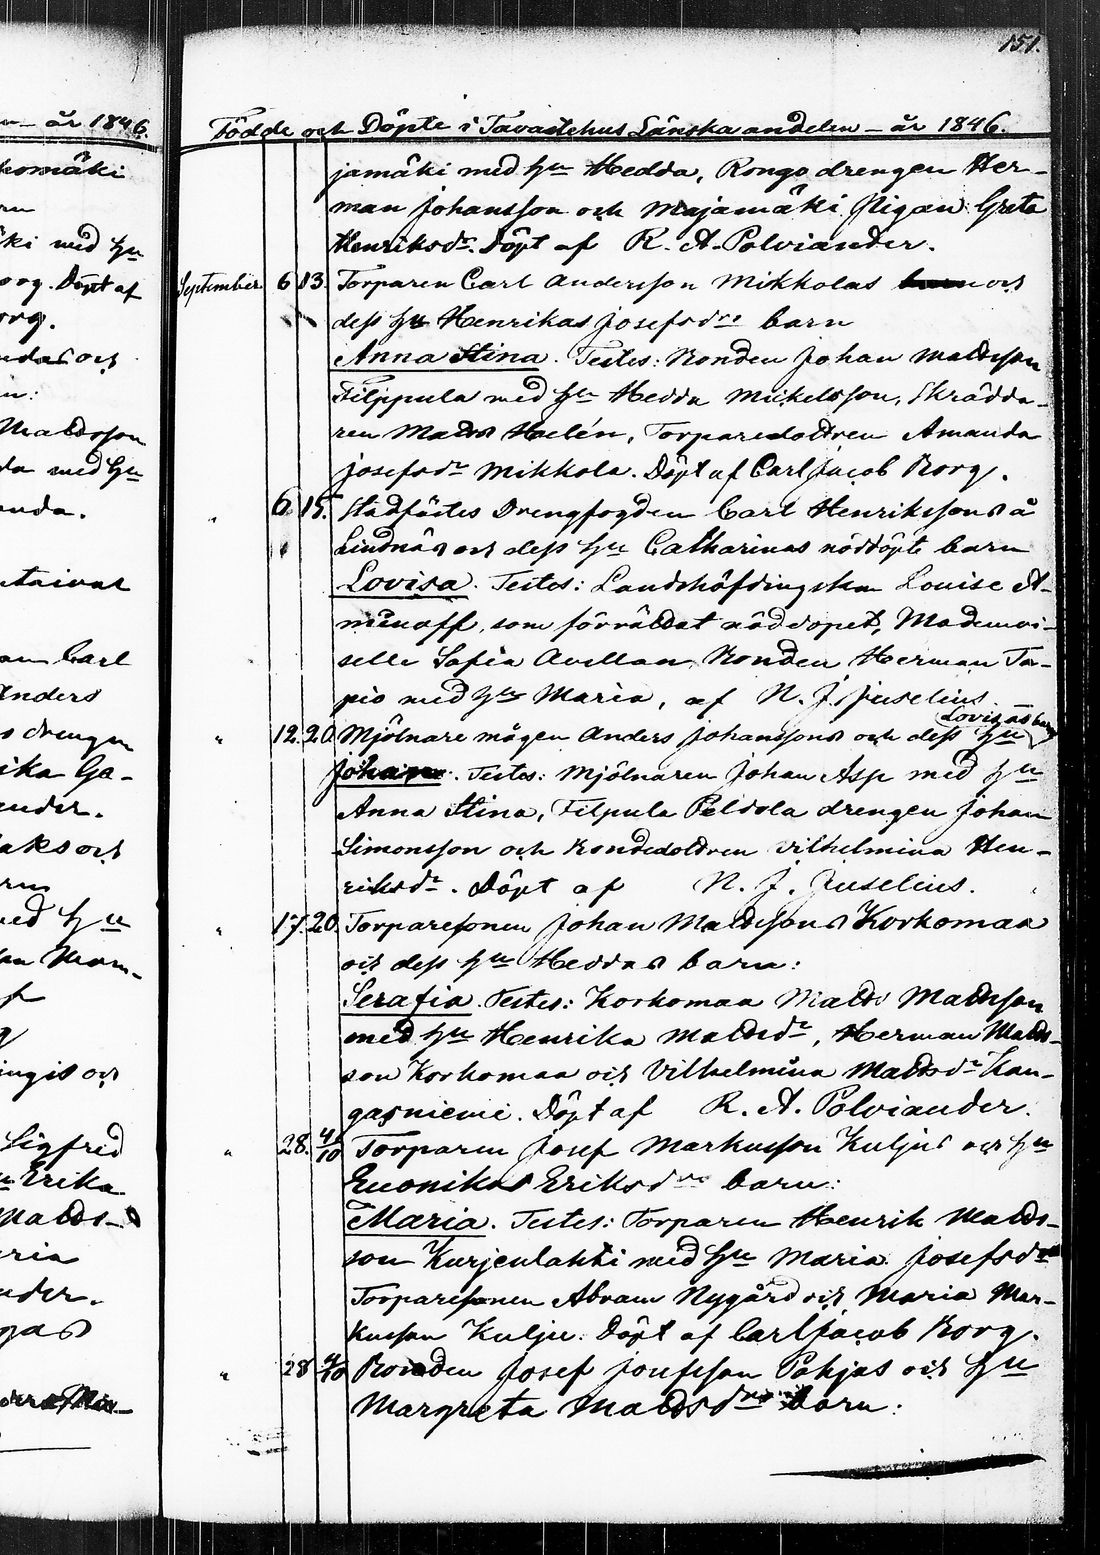 151.
n – år 1846.
Födde och Döpte i Tavastehus Länska andelen – år 1846.
komäki
jamäki med hu Hedda, Rongo drengen Her-
man Johansson och Majamäki Pigan Greta
ki med hu
Henriksdr. Döpt af R. A. Polviander.
org. Döpt af
September 6 13. Torparen Carl Andersson Mikkolas och
org.
dess hu Henrikas Josefsdrs barn
Anna Stina. Testes: Bonden Johan Mattsson
Filppula med hu Hedda Mickelsson, Skrädda-
Mattsson
ren Matts Helén, Torparedottren Amanda
da med hu
Josefsdr Mikkola. Döpt af Carl Jacob Borg.
anda.
6. 15. Stadfästes Drengfogden Carl Henrikssons å
Lindnäs och dess hu Catharinas nöddöpte barn
Lovisa. Testes: Landshöfdingskan Louise A-
minoff, som förrättat nöddopet, Mademoi-
selle Sofia Avellan, Bonden Herman Ta-
an Carl
pio med hu Maria, af N. J. Juselius.
Anders
Lovisas barn
" 12. 20. Mjölnare mågen Anders Johanssons och dess hu
s drengen
Johan. Testes: Mjölnaren Johan Asp med hu
ika Ga-
Anna Stina, Filpula Peldola drengen Johan
ander.
Simonsson och Bondedottren Vilhelmina Hen-
aks och
riksdr. Döpt af N. J. Juselius.
med hu
" 17. 20. Torparesonen Johan Mattssons Korkomaa
och dess hu Heddas barn:
Serafia. Testes: Korkomaa Matts Mattsson
med hu Henrika Mattsdr, Herman Matts-
son Korkomaa och Vilhelmina Mattsdr Kan-
ingis och
gasniemi. Döpt af R. A. Polviander.
Sigfrid
" 28. 4/10 Torparen Josef Markusson Kuljus och hu
Erika
Euonikas Eriksdrs barn:
Matts-
Maria. Testes: Torparen Henrik Matts-
ria
son Kurjenlahti med hu Maria Josefsdr
nder.
Torparesonen Abram Nygård och Maria Mar-
gas
kusson Kulju. Döpt af Carl Jacob Borg.
" 28 4/10 Bonden Josef Josefsson Pohjas och hu
Margreta Mattsdrs barn: